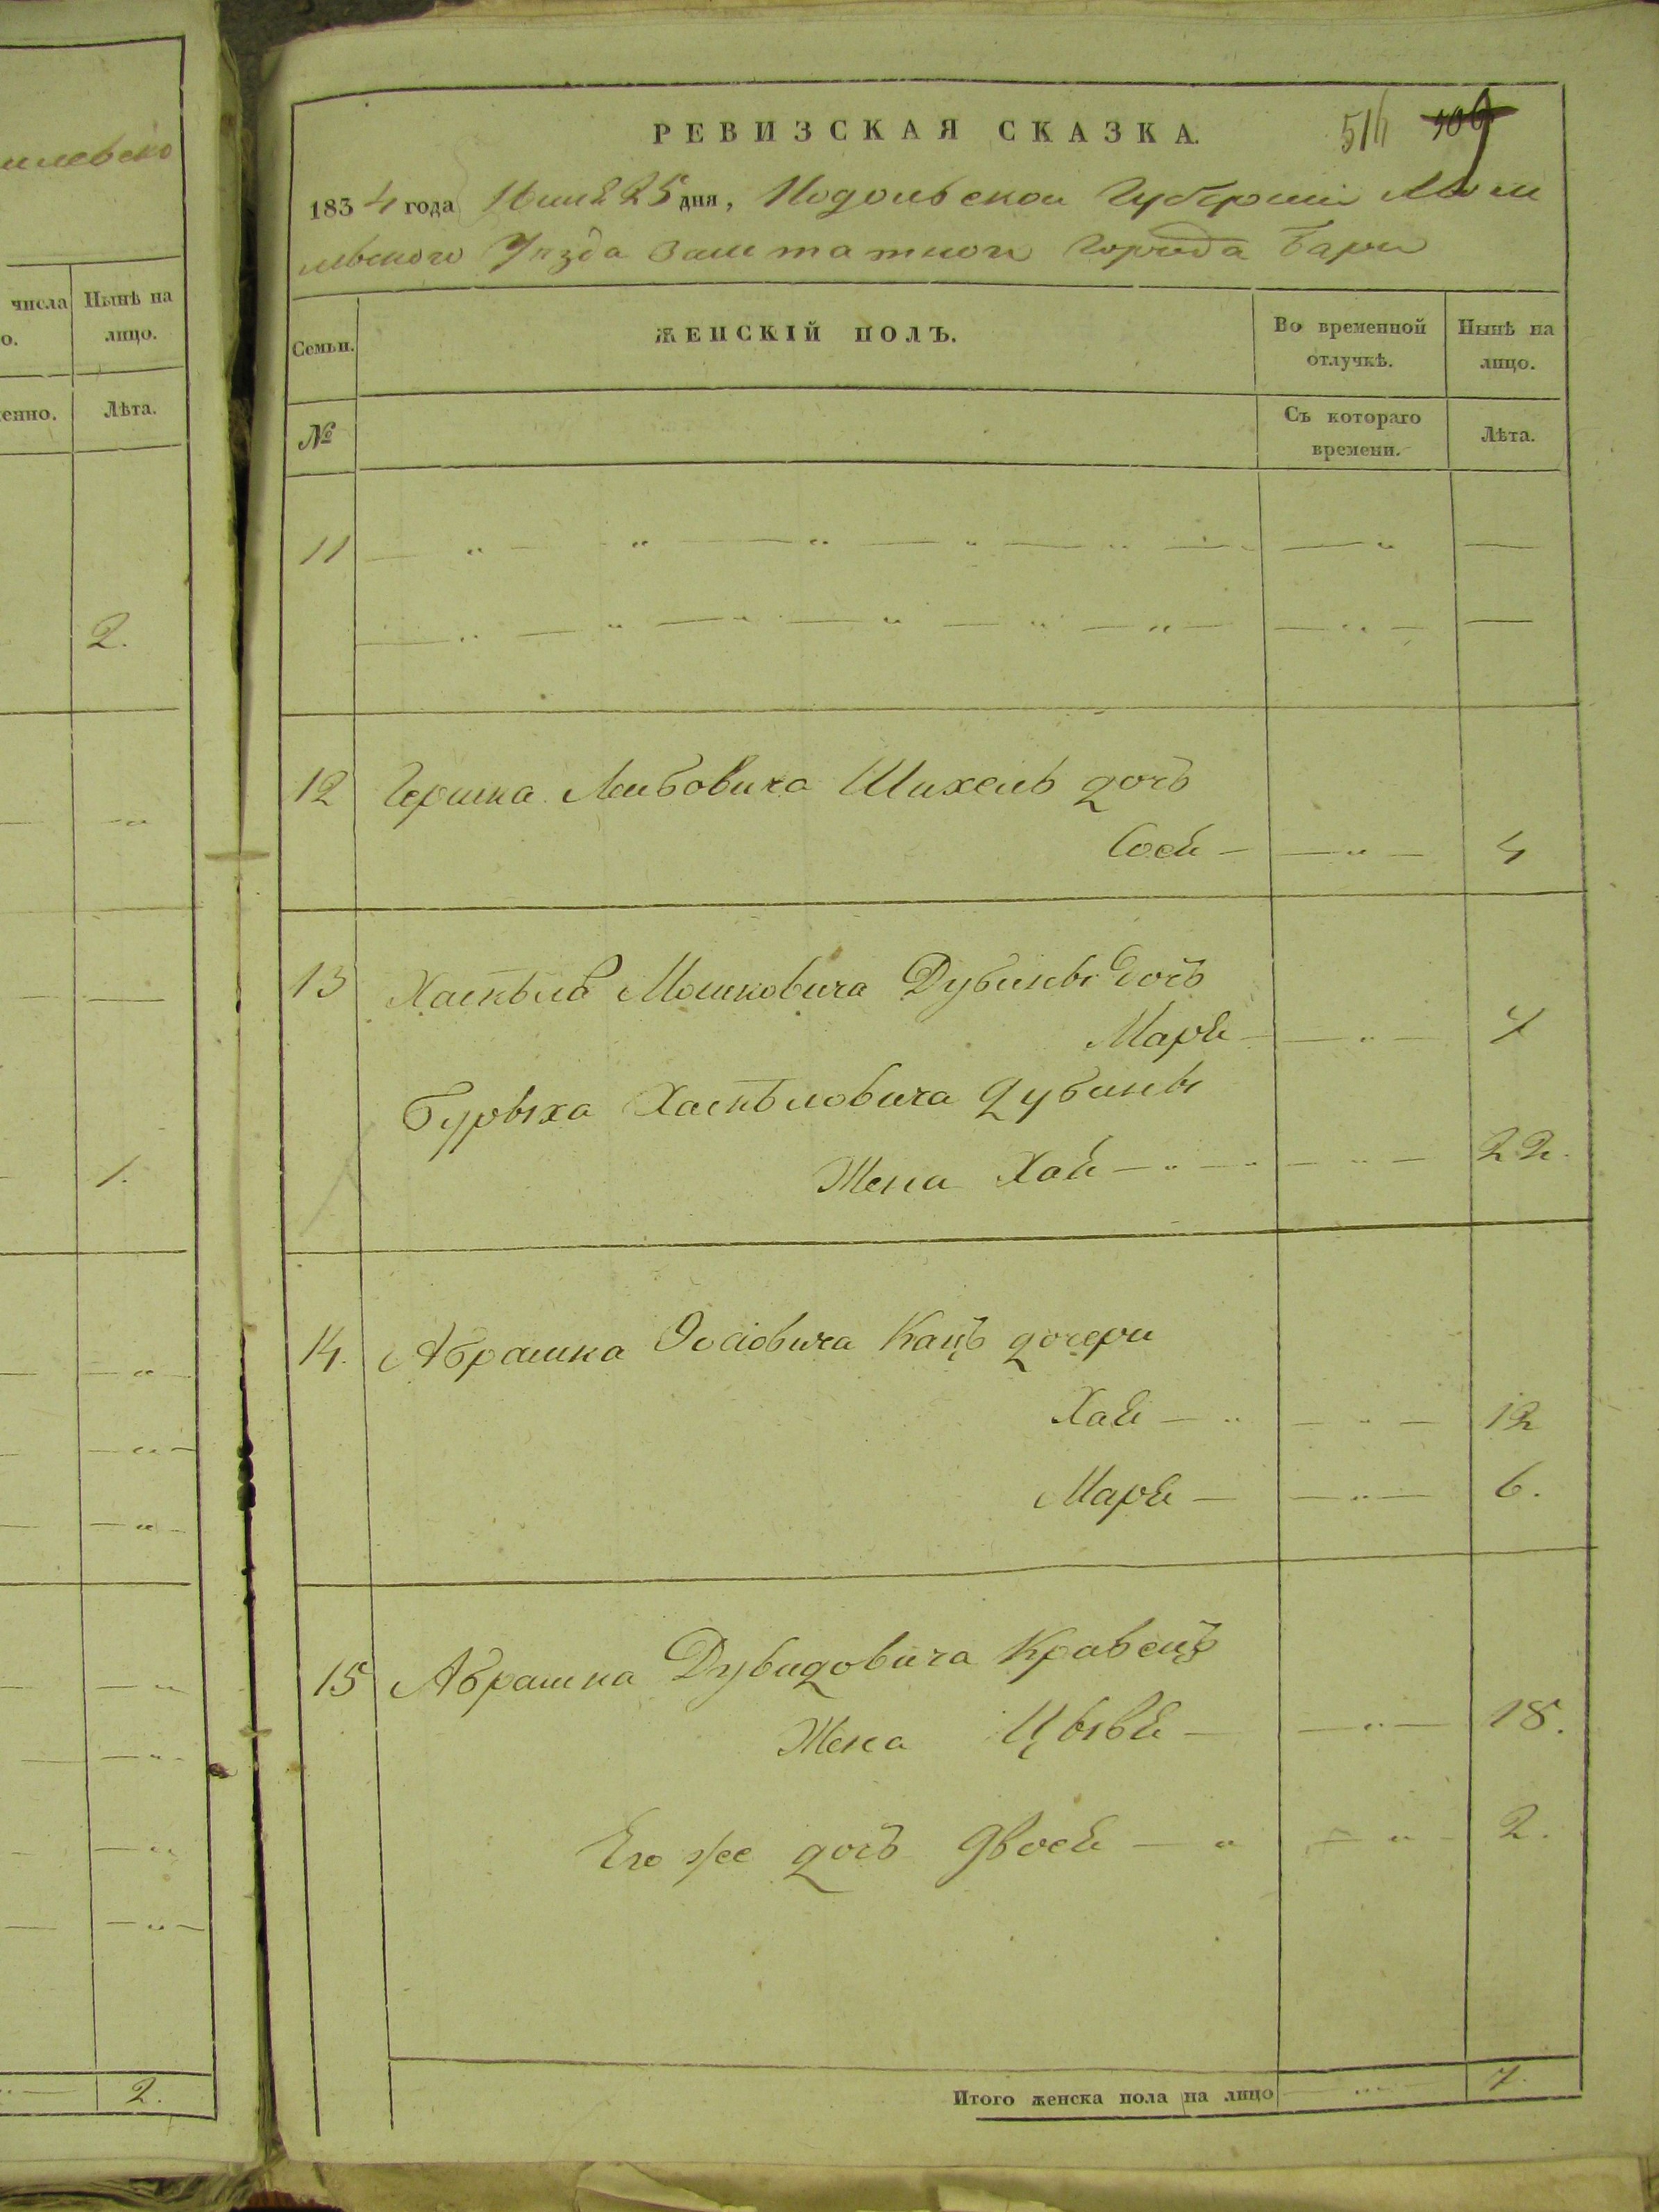 илевско
числа Нынѣ на
о. лицо.
енно. Лѣта.
2.
1.
2.
РЕВИЗСКАЯ СКАЗКА.
514
1834 года 25 дня, Подольской Губерніи Моги
левского Уѣзда Заштатного Города Бара
Семьи. ЖЕНСКІЙ ПОЛЪ. Во временной отлучкѣ. Нынѣ на лицо.
№ Съ котораго времени. Лѣта.
11
12 Гершка Лейбовича Шихель дочь
Сося 4
13 Хаскѣля Мошковича Дубины дочь
Маря 7
Бурыха Хаскѣловича Дубины
Жена Хая 22.
14. Абрашка Іосіовича Кацъ дочери
Хая 12
Маря 6.
15 Абрашка Дувидовича Кравецъ
Жена Цывя 18.
Его же дочь Двося 2.
Итого женска пола на лицо 7.